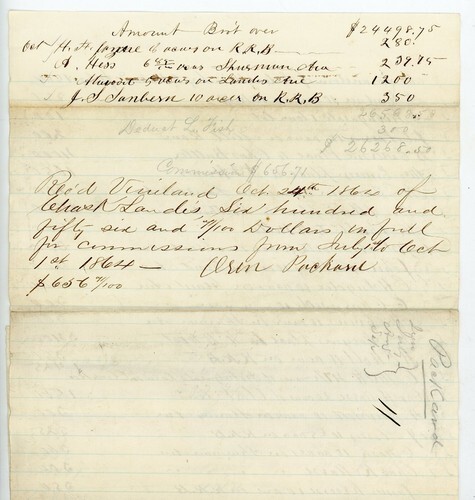 Amount Bro't over $24498.75
Oct H. H. 6 acres on R.R.B 280.
A. Hess 6 acres Shurman Ave 239.75
6 acres on Landis Ave 1200
J. S. Sanbern 10 acres on R.R.B. 350
300
Deduct Fish
$26268.50
Commission $656.71
Rec'd Vineland Oct 24th 1864 of
Chas K Landis, Six hundred and
fifty six and 71/100 Dollars in full
for commissions from July to Oct
1st 1864— Orin Packard
$656 71/100
Packard
July
Aug
Sept
11